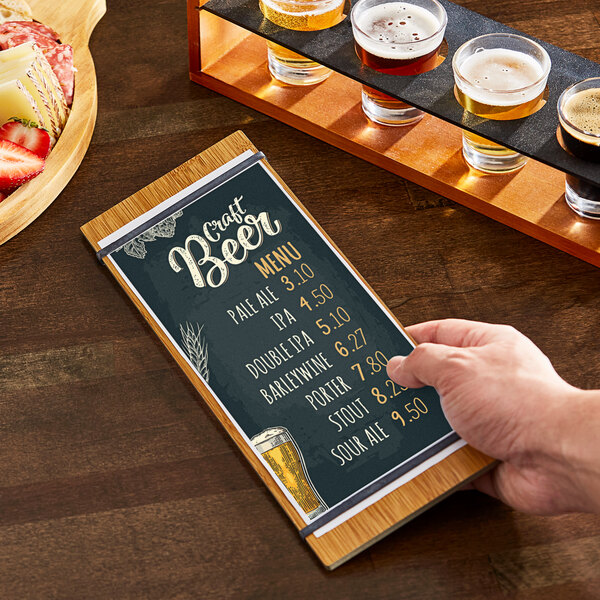 Craft
Beer
MENU
PALE ALE 3.10
IPA 4.50
DOUBLE IPA 5.10
BARLEYWINE 6.27
PORTER 7.80
STOUT
SOUR ALE 9.50